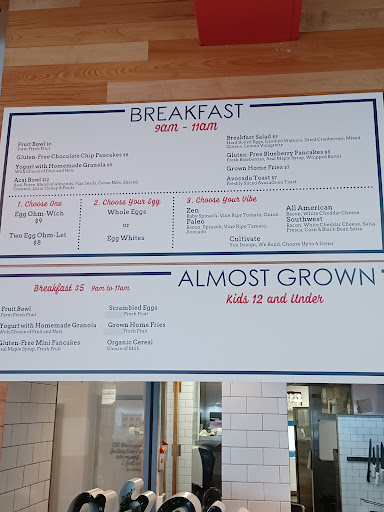 BREAKFAST
9am - 11am
Fruit Bowl $6
Farm Fresh Fruit
Gluten-Free Chocolate Chip Pancakes $8
Yogurt with Homemade Granola $6
With Choice of Fruit and Nuts
Acai Bowl $12
Acai Puree, Blend of Almonds, Flax Seeds, Cacao Nibs, Shaved
Coconut, Local Honey & Fruits
Breakfast Salad $9
Hard Boiled Eggs, Candied Walnuts, Dried Cranberries, Mixed
Greens, Lemon Vinaigrette
Gluten-Free Blueberry Pancakes $8
Fresh Blueberries, Real Maple Syrup, Whipped Butter
Grown Home Fries $7
Avocado Toast $7
Freshly Sliced Avocado on Toast
1. Choose One
Egg Ohm-Wich
$9
Two Egg Ohm-Let
$8
2. Choose Your Egg
Whole Eggs
or
Egg Whites
3. Choose Your Vibe
Zen
Baby Spinach, Vine Ripe Tomato, Onion
Paleo
Bacon, Spinach, Vine Ripe Tomato,
Avocado
All American
Bacon, White Cheddar Cheese
Southwest
Bacon, White Cheddar Cheese, Salsa
Fresca, Corn & Black Bean Salsa
Cultivate
You Design, We Build, Choose Up to 4 Items
Breakfast $5 9am to 11am
ALMOST GROWN
Kids 12 and Under
Fruit Bowl
Farm Fresh Fruit
Yogurt with Homemade Granola
With Choice of Fruit and Nuts
Gluten-Free Mini Pancakes
Real Maple Syrup, Fresh Fruit
Scrambled Eggs
Fresh Fruit
Grown Home Fries
Fresh Fruit
Organic Cereal
Choice of Milk